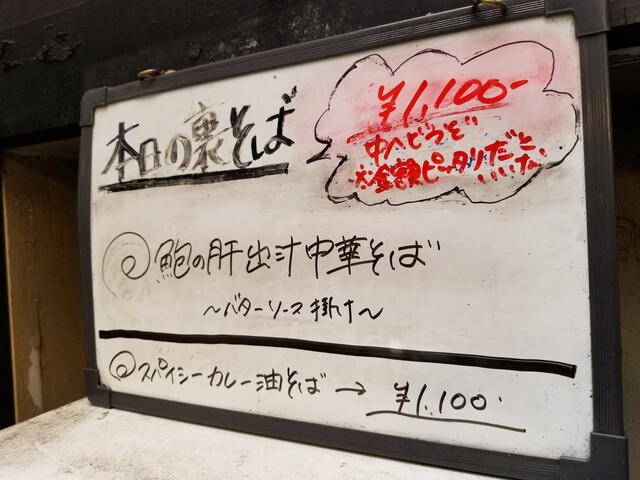 本日の裏そば
¥1,100-
中へどうぞ
※金額ピッタリだと
いいいな
鮑の肝出汁中華そば
〜バターソース掛け〜
スパイシーカレー油そば→¥1,100-